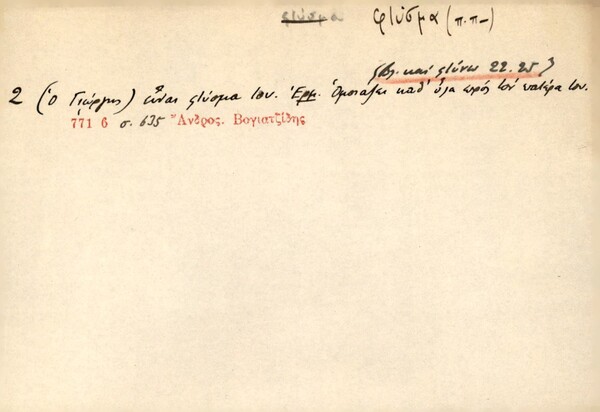 φτύσμα φτύσμα (π.π—)
(βλ. καί φτύνω 22.25)
2 (ὁ Γιώργης) εἶναι φτύσμα του. Ἑρμ. Ὁμοιάζει καθ' ὅλα πρός τόν πατέρα του.
771 6 σ. 635 Ἄνδρος. Βογιατζίδης